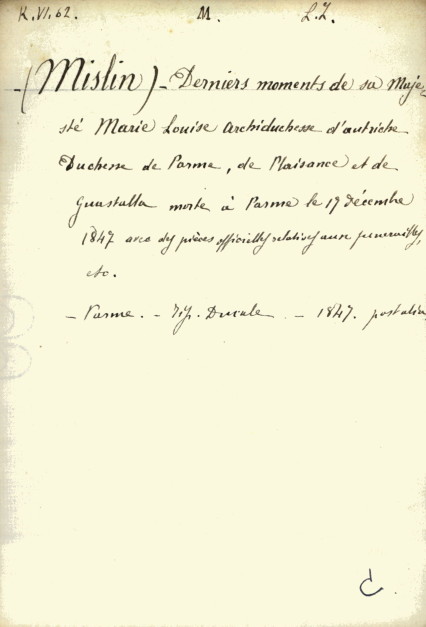 K.VI.62. M. L.Z.
(Mislin) - Derniers moments de sa Maje-
sté Marie Louise Archiduchesse d'autriche
Duchesse de Parme, de Plaisance et de
Guastalla morte à Parme le 17 décembre
1847 avec des pièces officielles relatives aux funerailles,
etc.
- Parme. - Tip. Ducale - 1847.